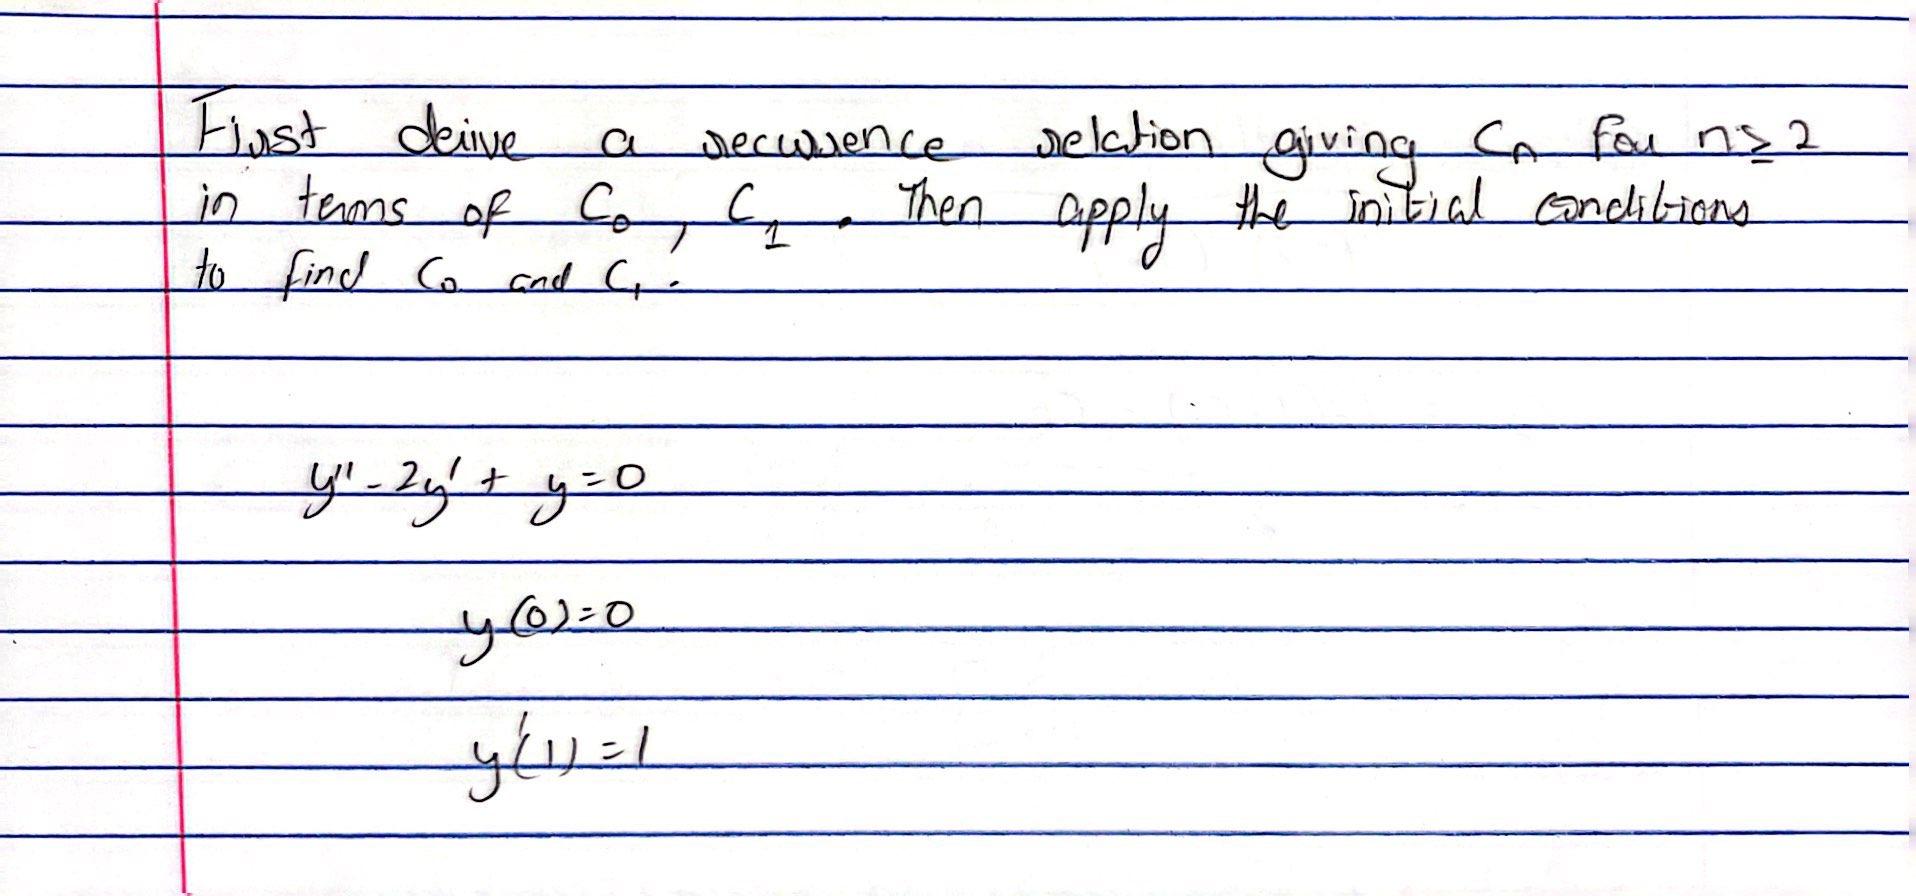 First derive a recurrence relation giving Cn for n ≥ 2
in terms of C₀, C₁. Then apply the initial conditions
to find C₀ and C₁.
y'' - 2y' + y = 0
y(0) = 0
y'(1) = 1